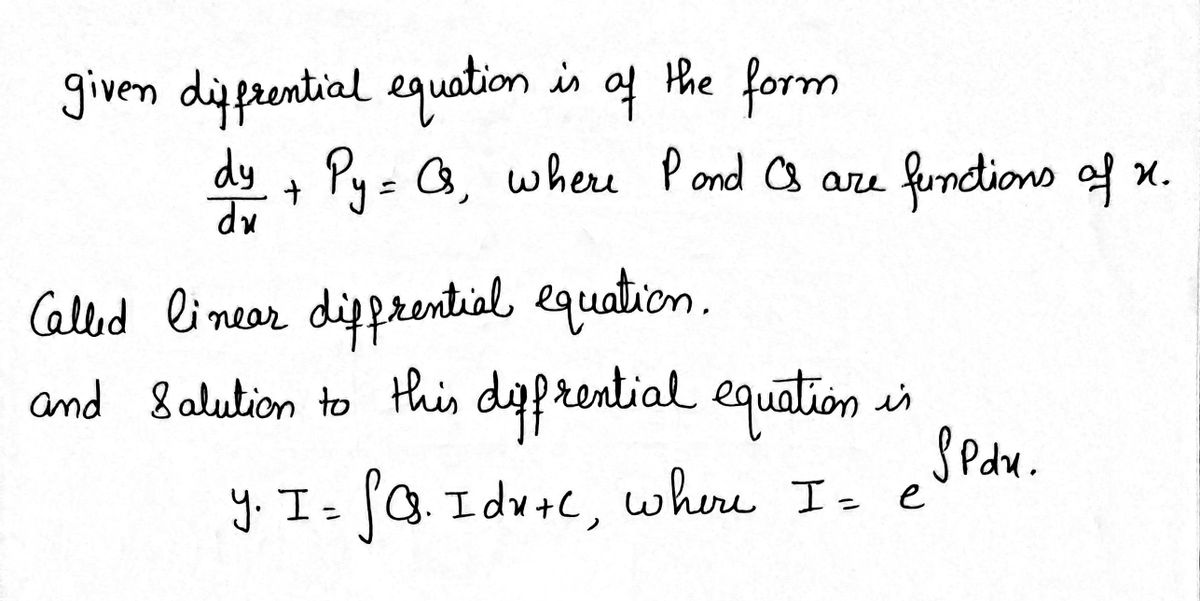 given diffrential equation is of the form
dy/dx + Py = Q, where P and Q are functions of x.
Called linear diffrential equation.
and Solution to this diffrential equation is
y. I = ∫Q. I dx + C, where I = e^∫Pdx.